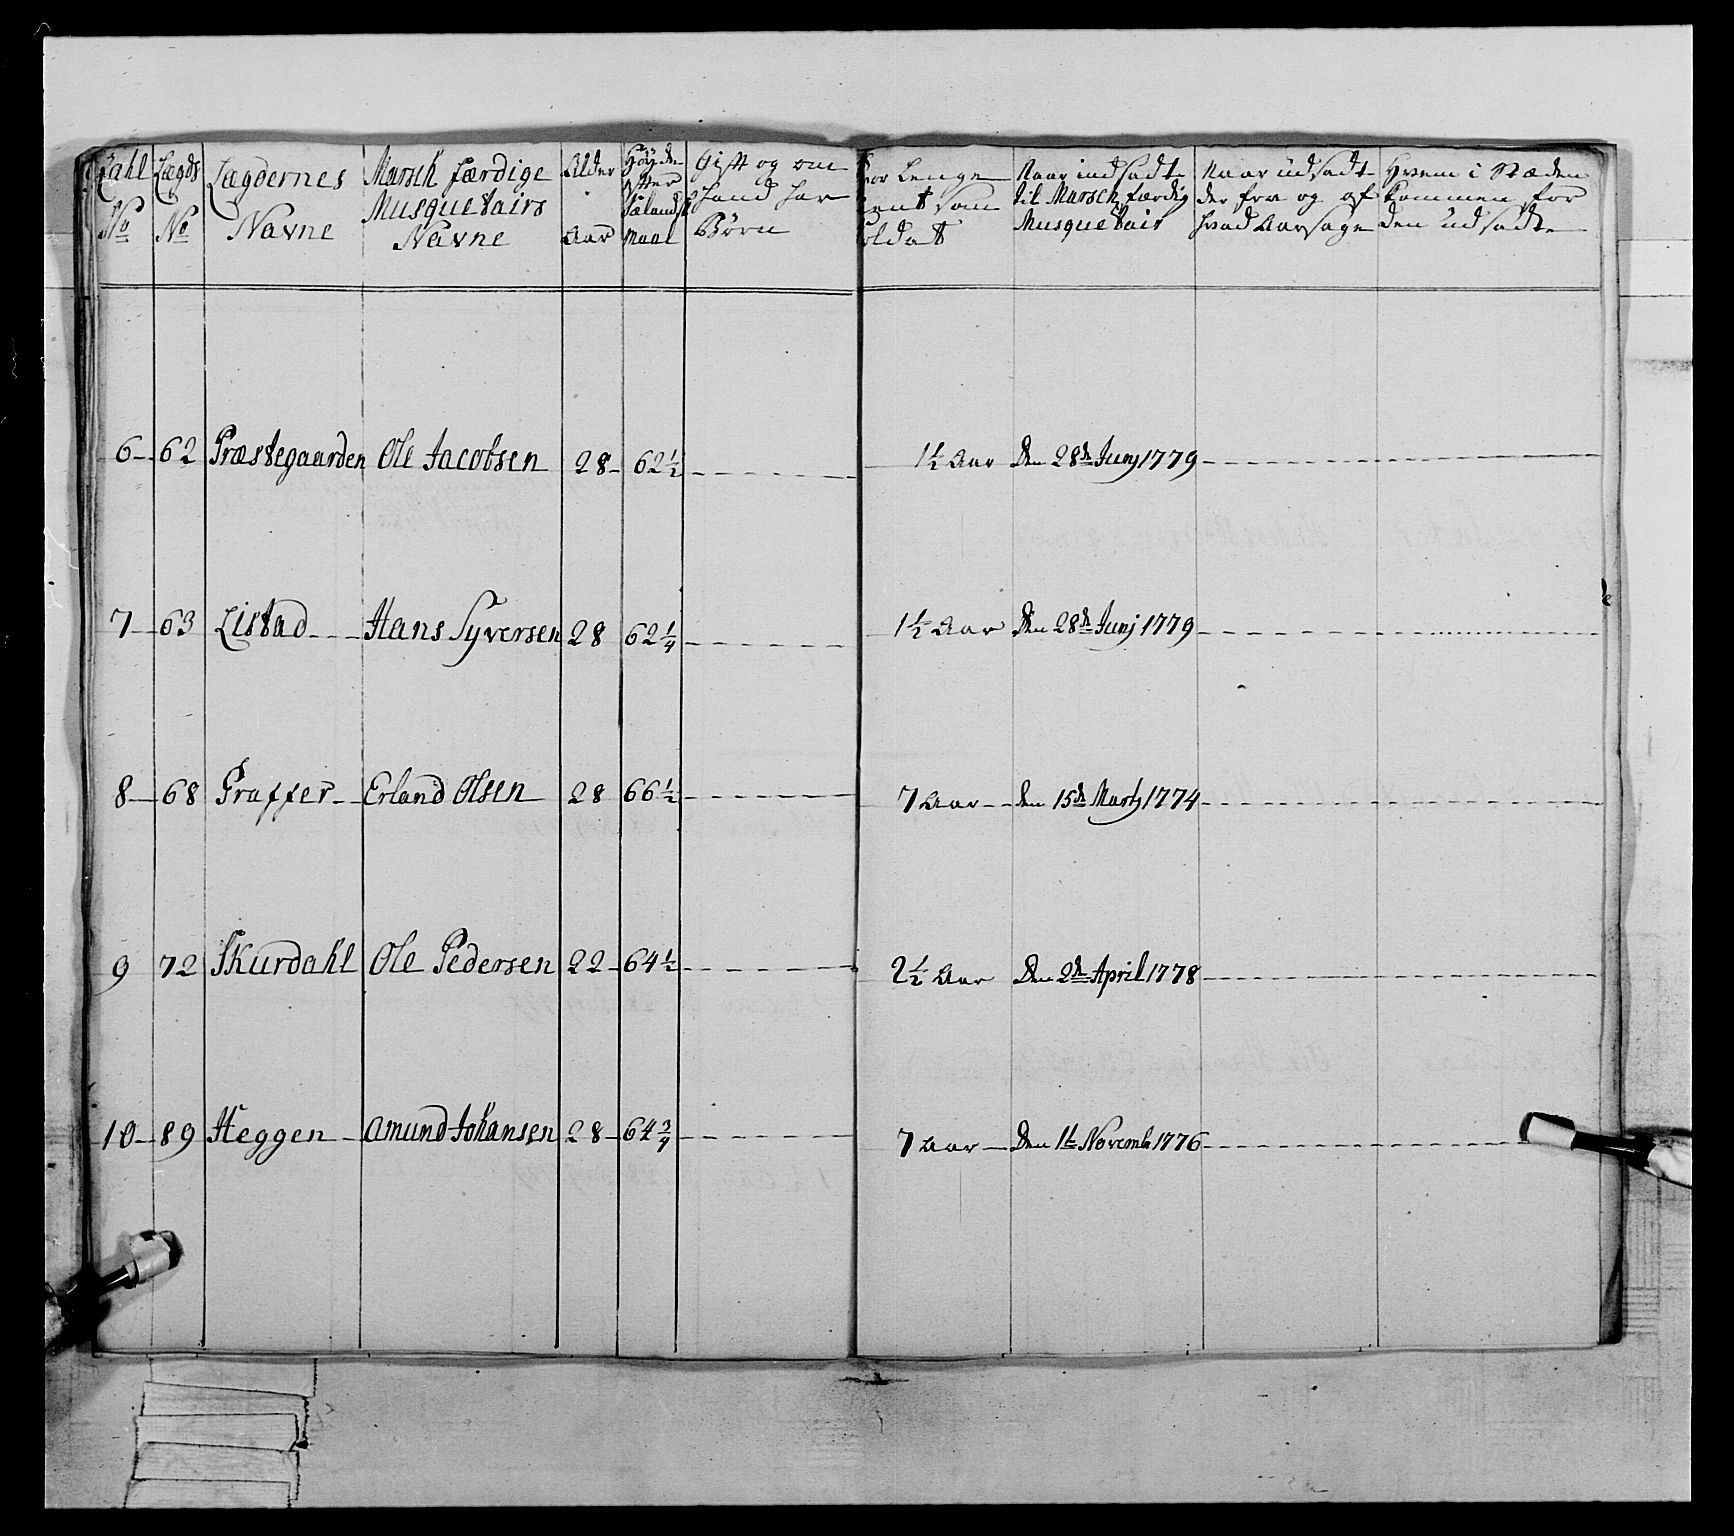 Zahl No | Lægds No | Lægdernes Navne | Marsch færdige Musquetairs Navne | Alder Aar | Höyden efter Sælands Maal | Gift og om hand har Börn | Hvor Lenge tient som Soldat | Naar indsadt til Marsch færdig Musquetair | Naar udsadt der fra og af hvad Aarsage | Hvem i Stæden kommen for den udsadte
6 | 62 | Præstegaarden | Ole Jacobsen | 28 | 62½ | | 1½ Aar | Den 28de Junj 1779
7 | 63 | Listad | Hans Syversen | 28 | 62¼ | | 1½ Aar | Den 28de Junj 1779
8 | 68 | Praffer | Erland Olsen | 28 | 66½ | | 7 Aar | den 15de Martj 1774
9 | 72 | Skurdahl | Ole Pedersen | 22 | 64½ | | 2½ Aar | Den 2de April 1778
10 | 89 | Heggen | Amund Johansen | 28 | 64¾ | | 7 Aar | Den 1te Novembr 1776